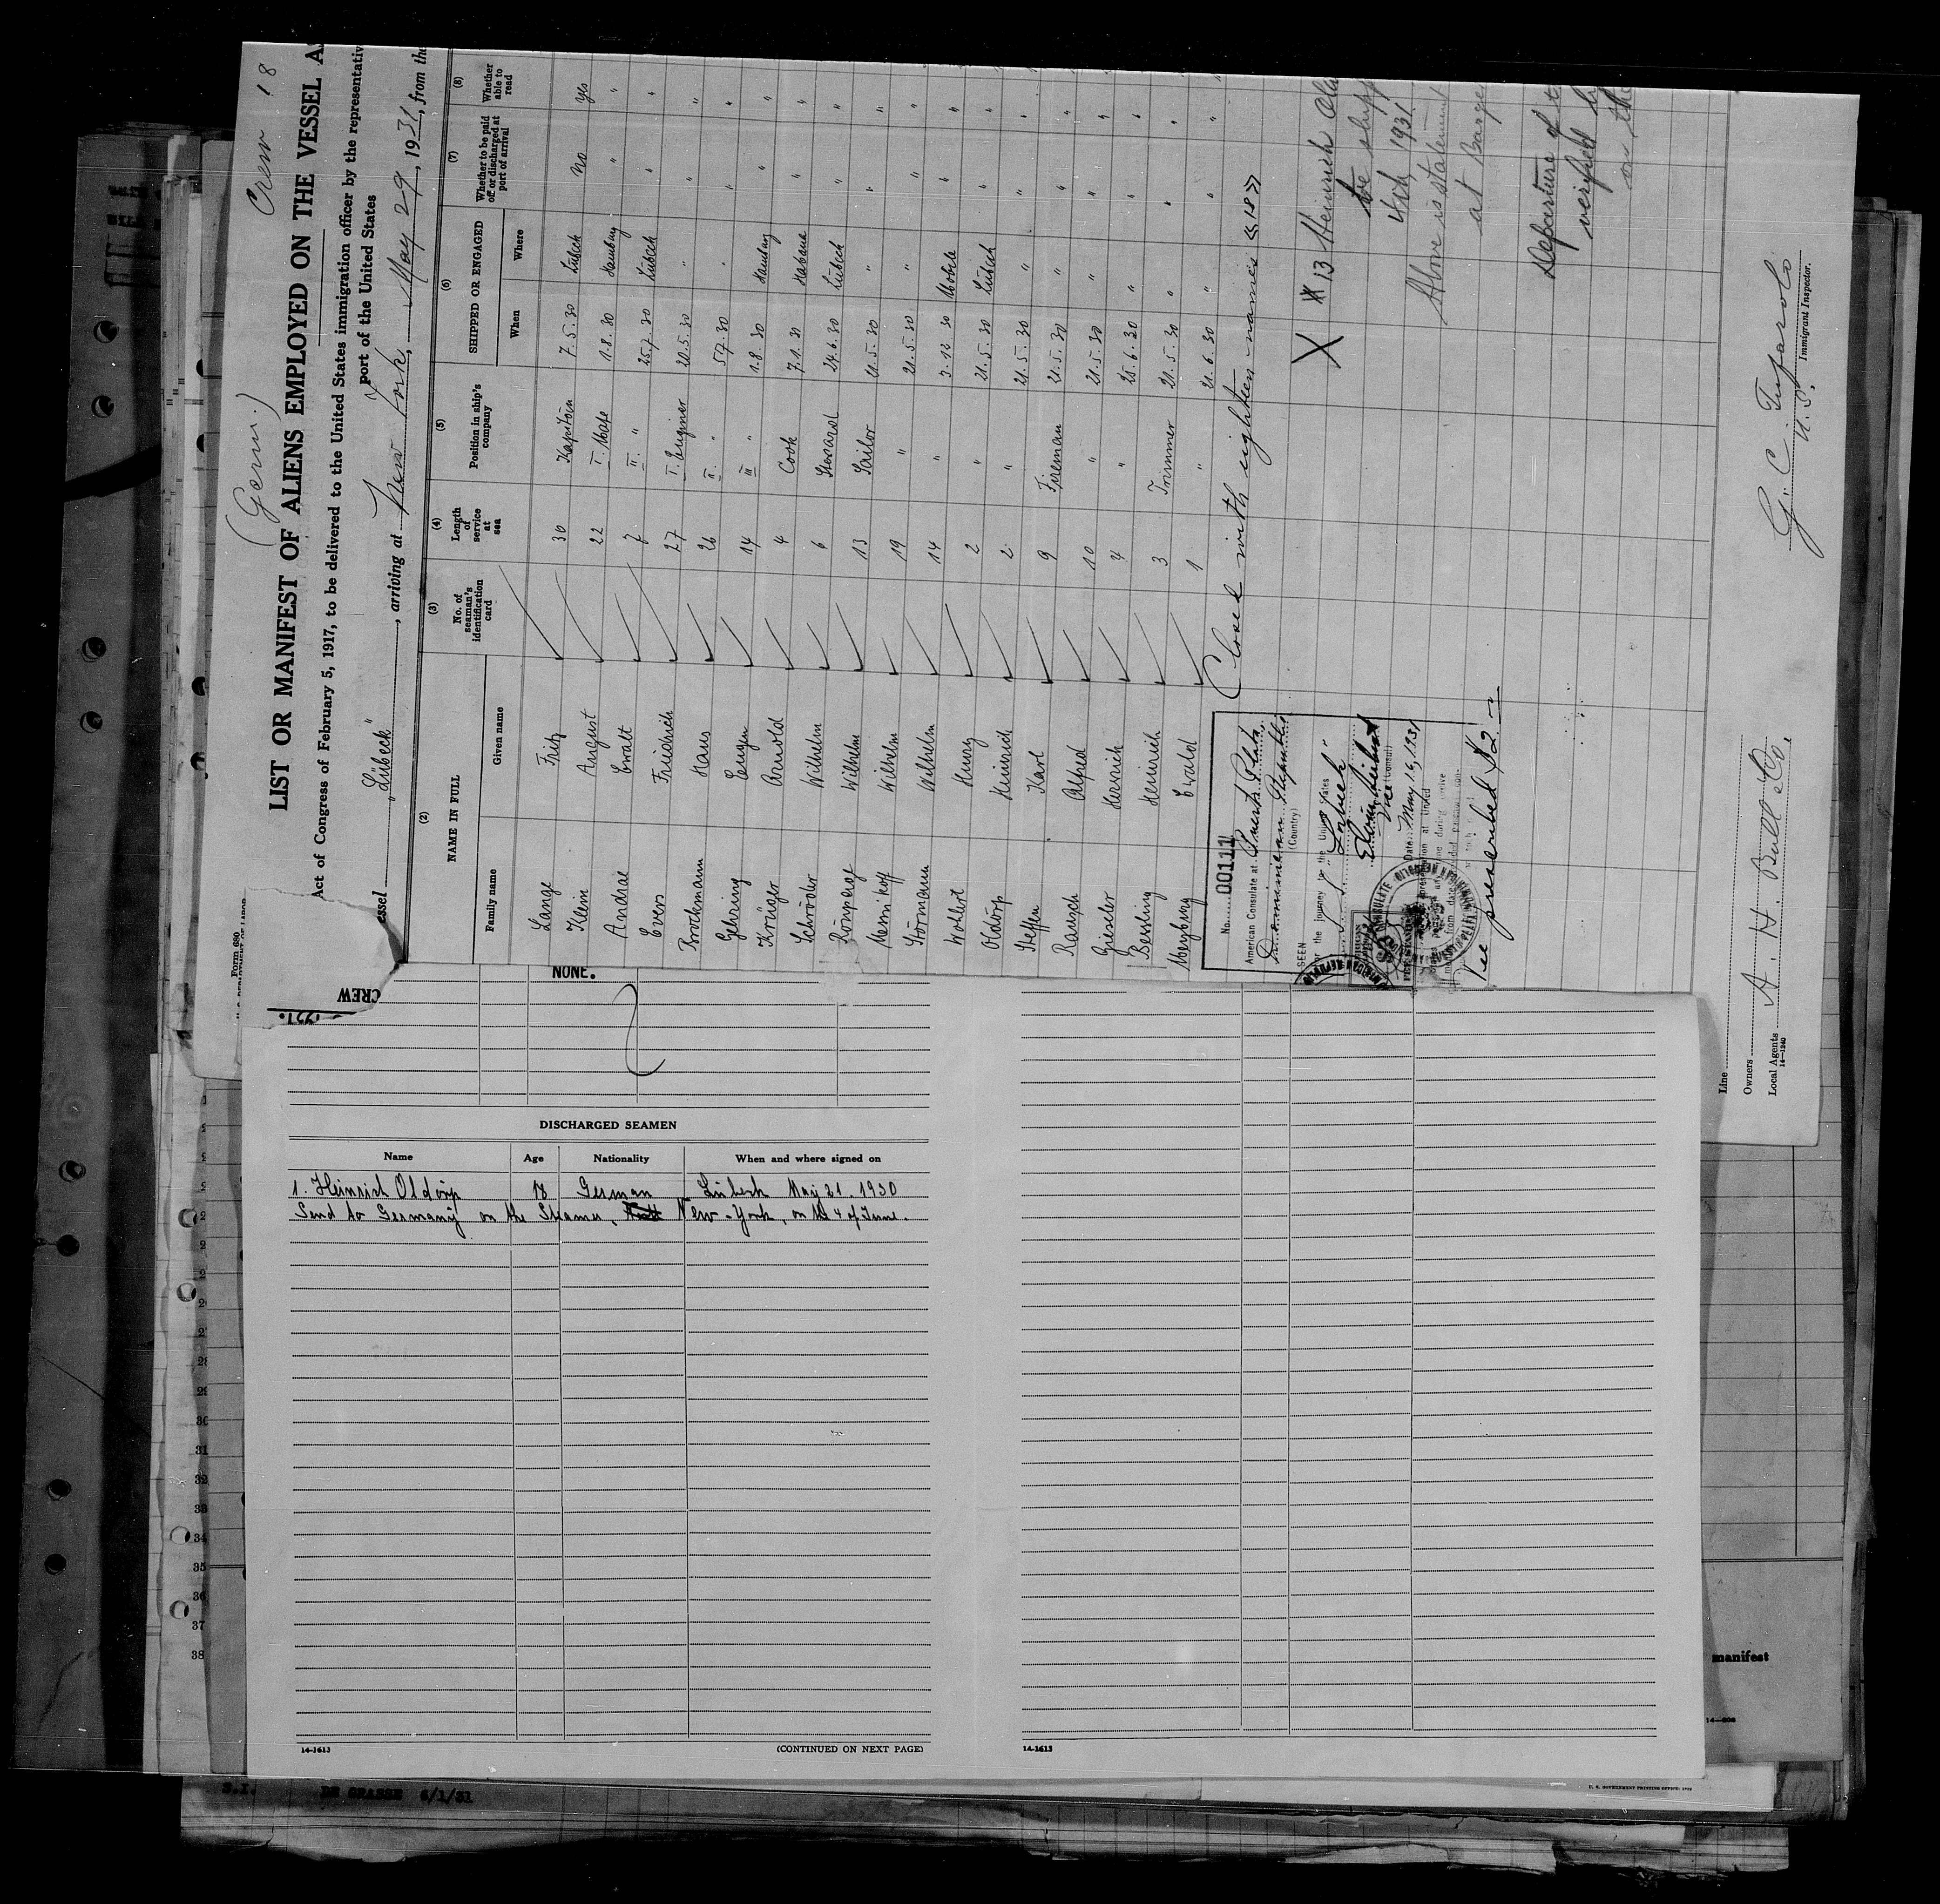 (Germ.) Crew 18
LIST OR MANIFEST OF ALIENS EMPLOYED ON THE VESSEL A
Act of Congress of February 5, 1917, to be delivered to the United States immigration officer by the representativ
port of the United States
essel „Lübeck“, arriving at New York, May 29, 1931, from the
(2) (3) (4) (5) (6) (7) (8)
NAME IN FULL No. of seaman's identification card Length of service at sea Position in ship's company SHIPPED OR ENGAGED Whether to be paid off or discharged at port of arrival Whether able to read
Family name Given name When Where
Lange Fritz 30 Kapitän 7.5.30 Lübeck No Yes
Klein August 22 I. Mate 1.8.30 Hamburg " "
Andrae Ewalt 7 II. " 25.7.30 Lübeck " "
Evers Friedrich 27 I. Enginer 20.5.30 " " "
Brockmann Hans 26 II. " 5.7.30 " " "
Gehring Eugen 14 III " 1.8.30 Hamburg " "
Krüger Arnold 4 Cook 7.1.31 Habana " "
Schröder Wilhelm 6 Steward 24.6.30 Lübeck " "
Wilhelm 13 Sailor 21.5.30 " " "
Wilhelm 19 " 21.5.30 " " "
Störmann Wilhelm 14 " 3.12.30 Mobile " "
Wohlert Henry 2 " 21.5.30 Lübeck " "
Oldörp Heinrich 2 " 21.5.30 " " "
Steffen Karl 9 Fireman 21.5.30 " " "
Rausch Alfred 10 " 21.5.30 " " "
Giesler Herrich 4 " 25.6.30 " " "
Bessling Heinrich 3 Trimmer 21.5.30 " " "
Meyburg Ewald 1 " 21.6.30 " " "
Closed with eighteen names «18»
No. 00111
American Consulate at Puerto Plata,
Dominican Republic
(Country)
SEEN
For the journey to the United States
S/S "Lübeck"
Vice Consul
Date: May 16, 1931
Fee prescribed $2.—
X #13 Heinrich Old
to be shipp
4th, 1931
Above is statement
at Barge
Departure of t
verified
on the
G. C. Tufarolo
U. S. Immigrant Inspector.
Line
Owners A. H. Bull & Co.
Local Agents
14—1240
Form 680
U. S. DEPARTMENT OF LABOR
CREW
NONE.
DISCHARGED SEAMEN
Name Age Nationality When and where signed on
1. Heinrich Oldörp 18 German Lübeck May 21. 1930
Send to Germany on the Steamer, New-York, on the 4 of June.
14-1613 (CONTINUED ON NEXT PAGE) 14-1613
28
29
30
31
32
33
34
35
36
37
38
manifest
14—606
U. S. GOVERNMENT PRINTING OFFICE
S.I. DE GRASSE 6/1/31